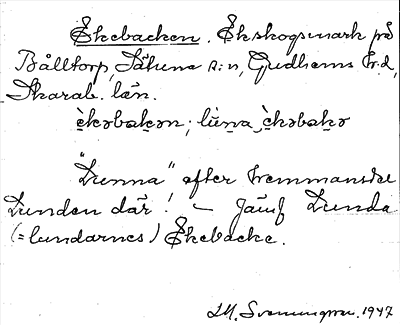 Ekebacken. Ekskogsmark på
Bålltorp, Sätuna s:n, Gudhems hd,
Skarab. län.
èkəbakən; lùna èkəbakə
"Lunna" efter hemmanet
Lunden där! – Jämf Lunda
(= lundarnes) Ekebacke.
1947